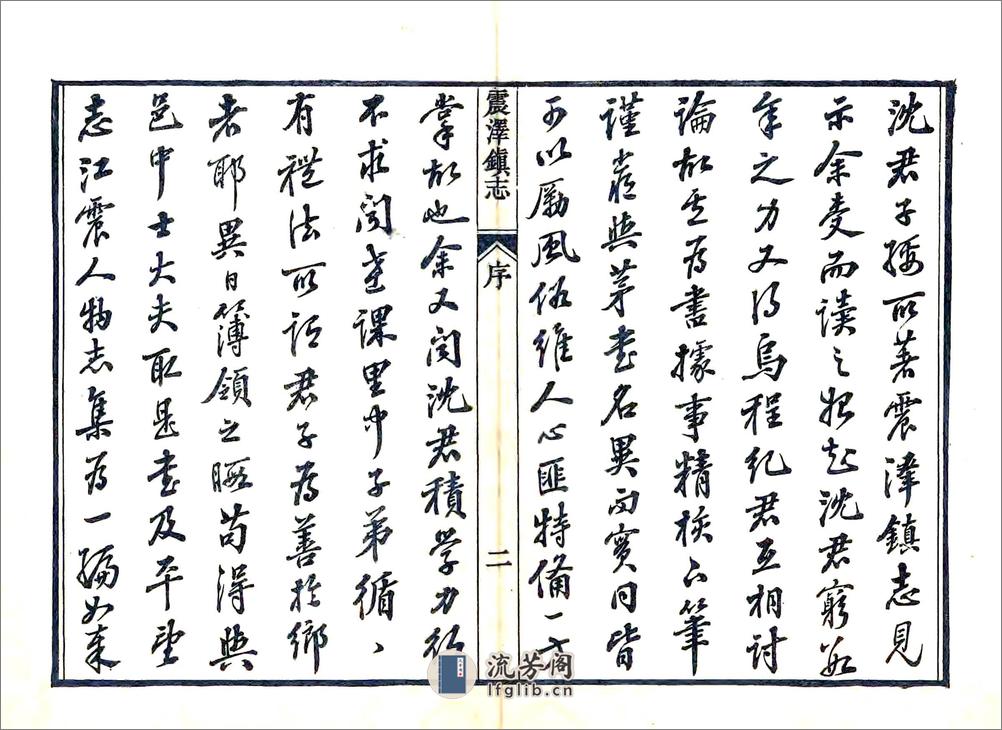 沈君子綏所著震澤鎮志見
示余受而讀之始知沈君窮數
年之力又得烏程紀君互相討
論故其為書據事精核下筆
謹嚴與書名異而實同皆
可以勵風俗維人心匪特備一方
震澤鎮志 序 二
掌故也余又聞沈君積學力行
不求聞達課里中子弟循〻
有禮法所謂君子為善於鄉
者耶異日簿領之暇苟得與
邑中士大夫取是書及平望
志江震人物志集為一編以来
流芳阁
lfglib.cn